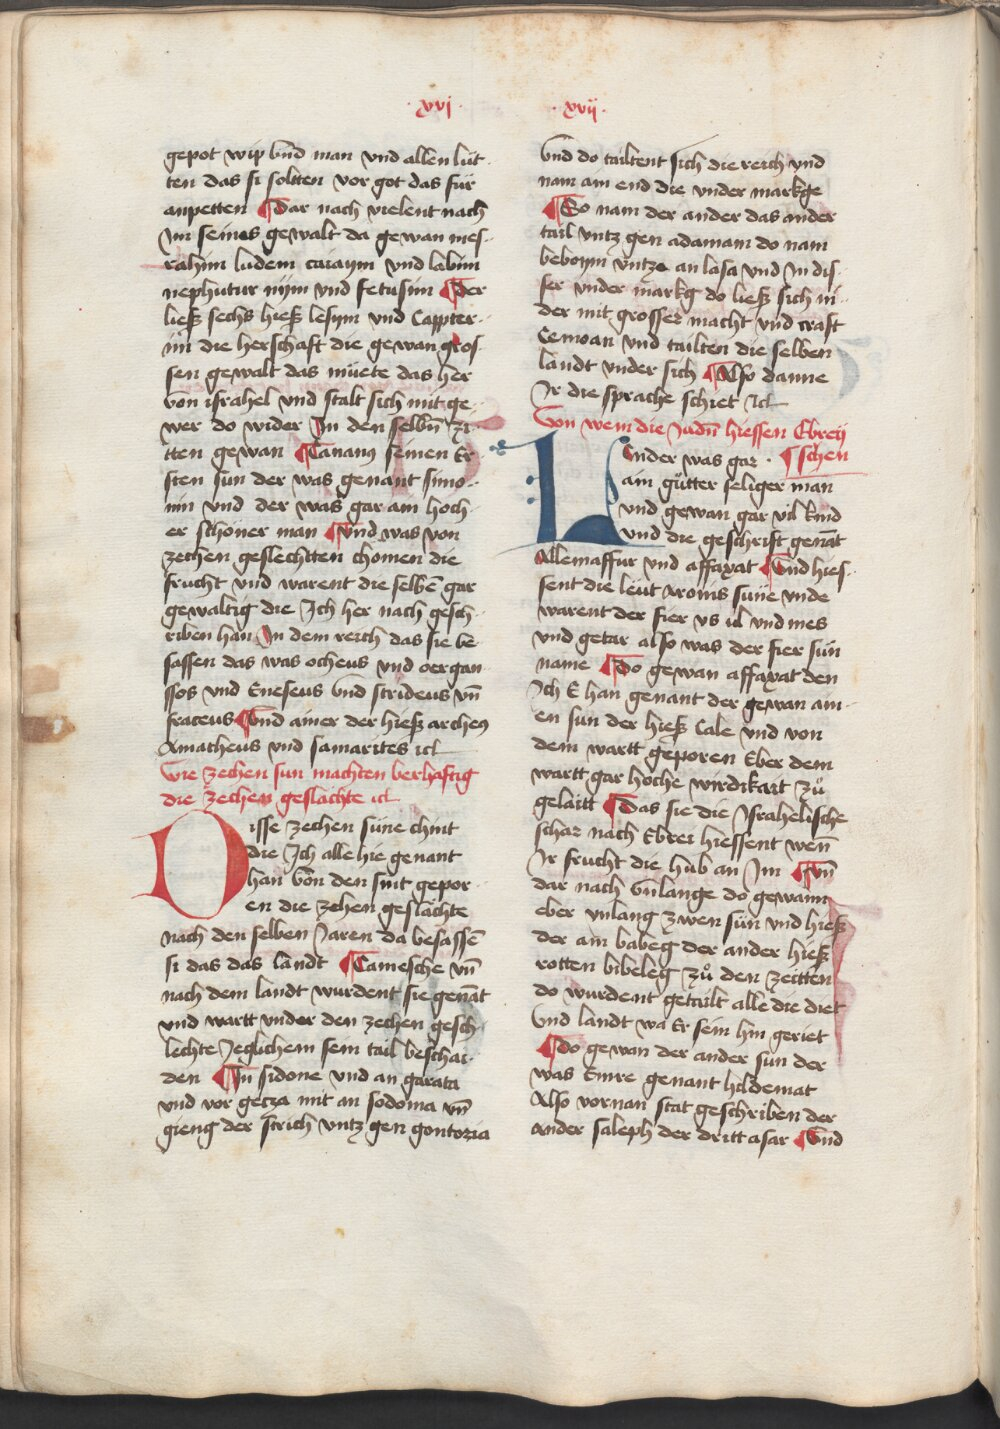 · xvi ·
gepot wip vnd man vnd allen lüt
ten das si soltten vor got das für
anpetten ¶ Dar nach vielent nach
Im seines gewalt da gewan mes-
rahym ludem caraym vnd labim
nephutur nym vnd fetusim ¶ Der
ließ sechs hieß lesym vnd Cappter-
im die herschaft die gewan gros-
sen gewalt das müete das her
von israhel vnd stalt sich mit ge-
wer do wider In den selbñ zi-
tten gewan ¶ Canany seinen Er-
sten sun der was genant simo-
nin vnd der was gar am hoch-
er schöner man ¶ Vnd was von
zechen geslechtten chomen die
frucht vnd warent die selbē gar
gewaltig die Ich her nach gesch-
riben han In dem reich das sie be-
sassen das was ocheus vnd oergan-
ssos vnd Eneseus vnd strideus vn̄
fraceus ¶ Vnd ainer der hieß archeus
Amatheus vnd samarites icl
Wie zechen sun machten berhafftig
die zechen geslächte icl
Disse zechen süne chint
die Ich alle hie genant
han von den sint gepor-
en die zehen geslächte
nach den selben Jaren da besassē
si das das landt ¶ Camesche vn̄
nach dem landt wurdent sie genāt
vnd wartt vnder den zechen gesch-
lechte Jeglichem sein tail beschai-
den ¶ In sidone vnd an garata
vnd vor gecza mit an sodoma vn̄
gieng der strich vntz gen gontozia
· xvij ·
Vnd do tailtent sich die reich vnd
nam ain end die vnder markge
¶ So nam der ander das ander
tail vntz gen adamam do nam
beboym vntze an lasa vnd In dis-
ser vnder markg do ließ sich ni-
der mit grosser macht vnd craft
Cemoan vnd tailten die selben
landt vnder sich ¶ Also danne
Ir die sprache schiet icl
Von wem die Judn̄ hiessen Ebrey
¶ schen
Vnder was gar ·
ain gütter seliger man
vnd gewan gar vil kind
vnd die geschrift genāt
Allemassur vnd affaxat ¶ Vnd hies-
sent die leüt Aroms süne vnde
warent der fier vs ul vnd mes
vnd getar also was der fier sun
name ¶ Do gewan affaxat den
Ich E han genant der gewan ain-
en sun der hieß Cale vnd von
dem wartt geporen Eber dem
wartt gar hoche wirdikait zů
gelaitt ¶ Das sie die Israhelische
schar nach Ebrei hiessent wen̄
Ir frucht die hůb an Im ¶ Vn̄
dar nach vnlange do gewann
eber vnlang zwen sün vnd hieß
der ain babeg der ander hieß
rotten bibeleg zů den zeitten
do wurdent getailt alle die diet
Vnd landt wa Er sein hin geriet
¶ Do gewan der ander sun der
was Emre genant heldemat
Also vornan stat geschriben der
ander saleph der dritt asar ¶ Vnd